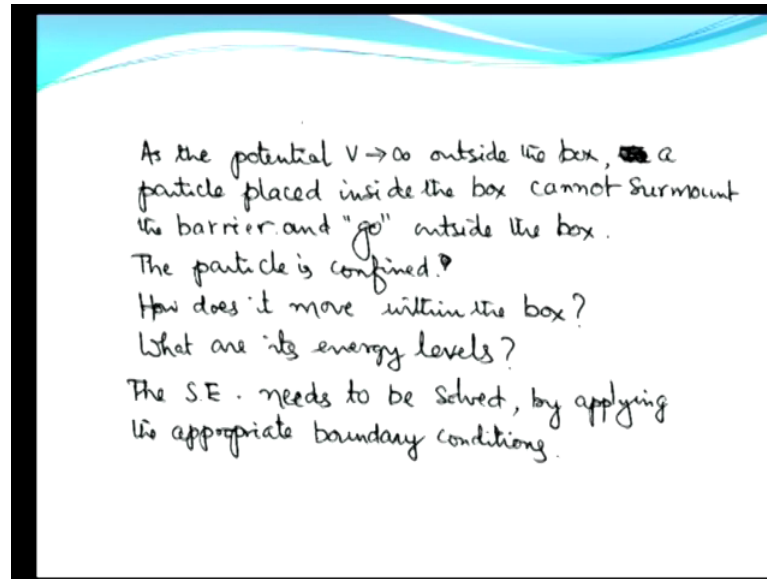 As the potential V → ∞ outside the box, a
particle placed inside the box cannot surmount
the barrier and "go" outside the box.
The particle is confined.
How does it move within the box?
What are its energy levels?
The S.E. needs to be solved, by applying
the appropriate boundary conditions.